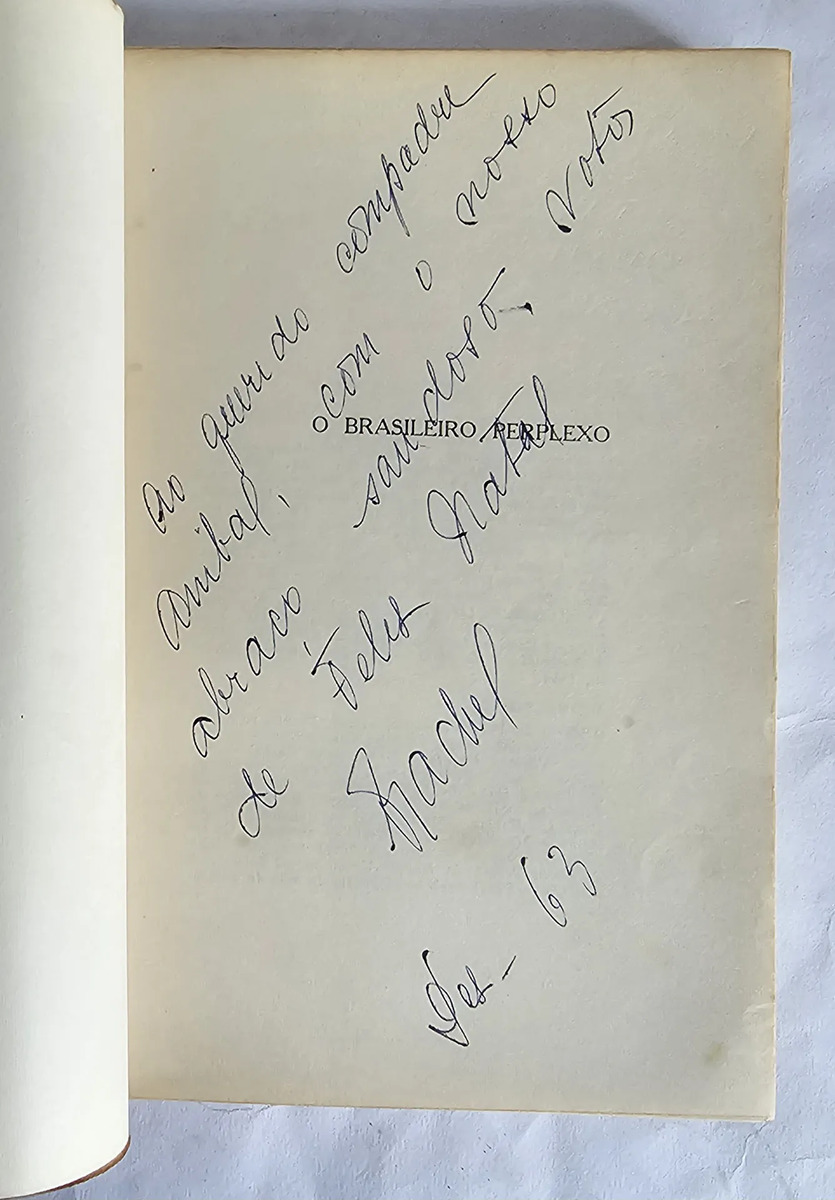 Ao querido compadre
Anibal, com o nosso
abraco saudoso, votos
de Feliz Natal
Rachel
Dez - 63
O BRASILEIRO PERPLEXO